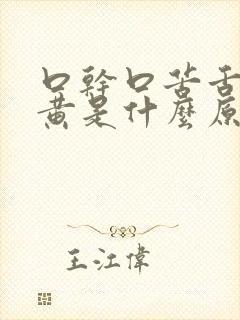 口幹口苦舌
黃是什麼原
王江偉